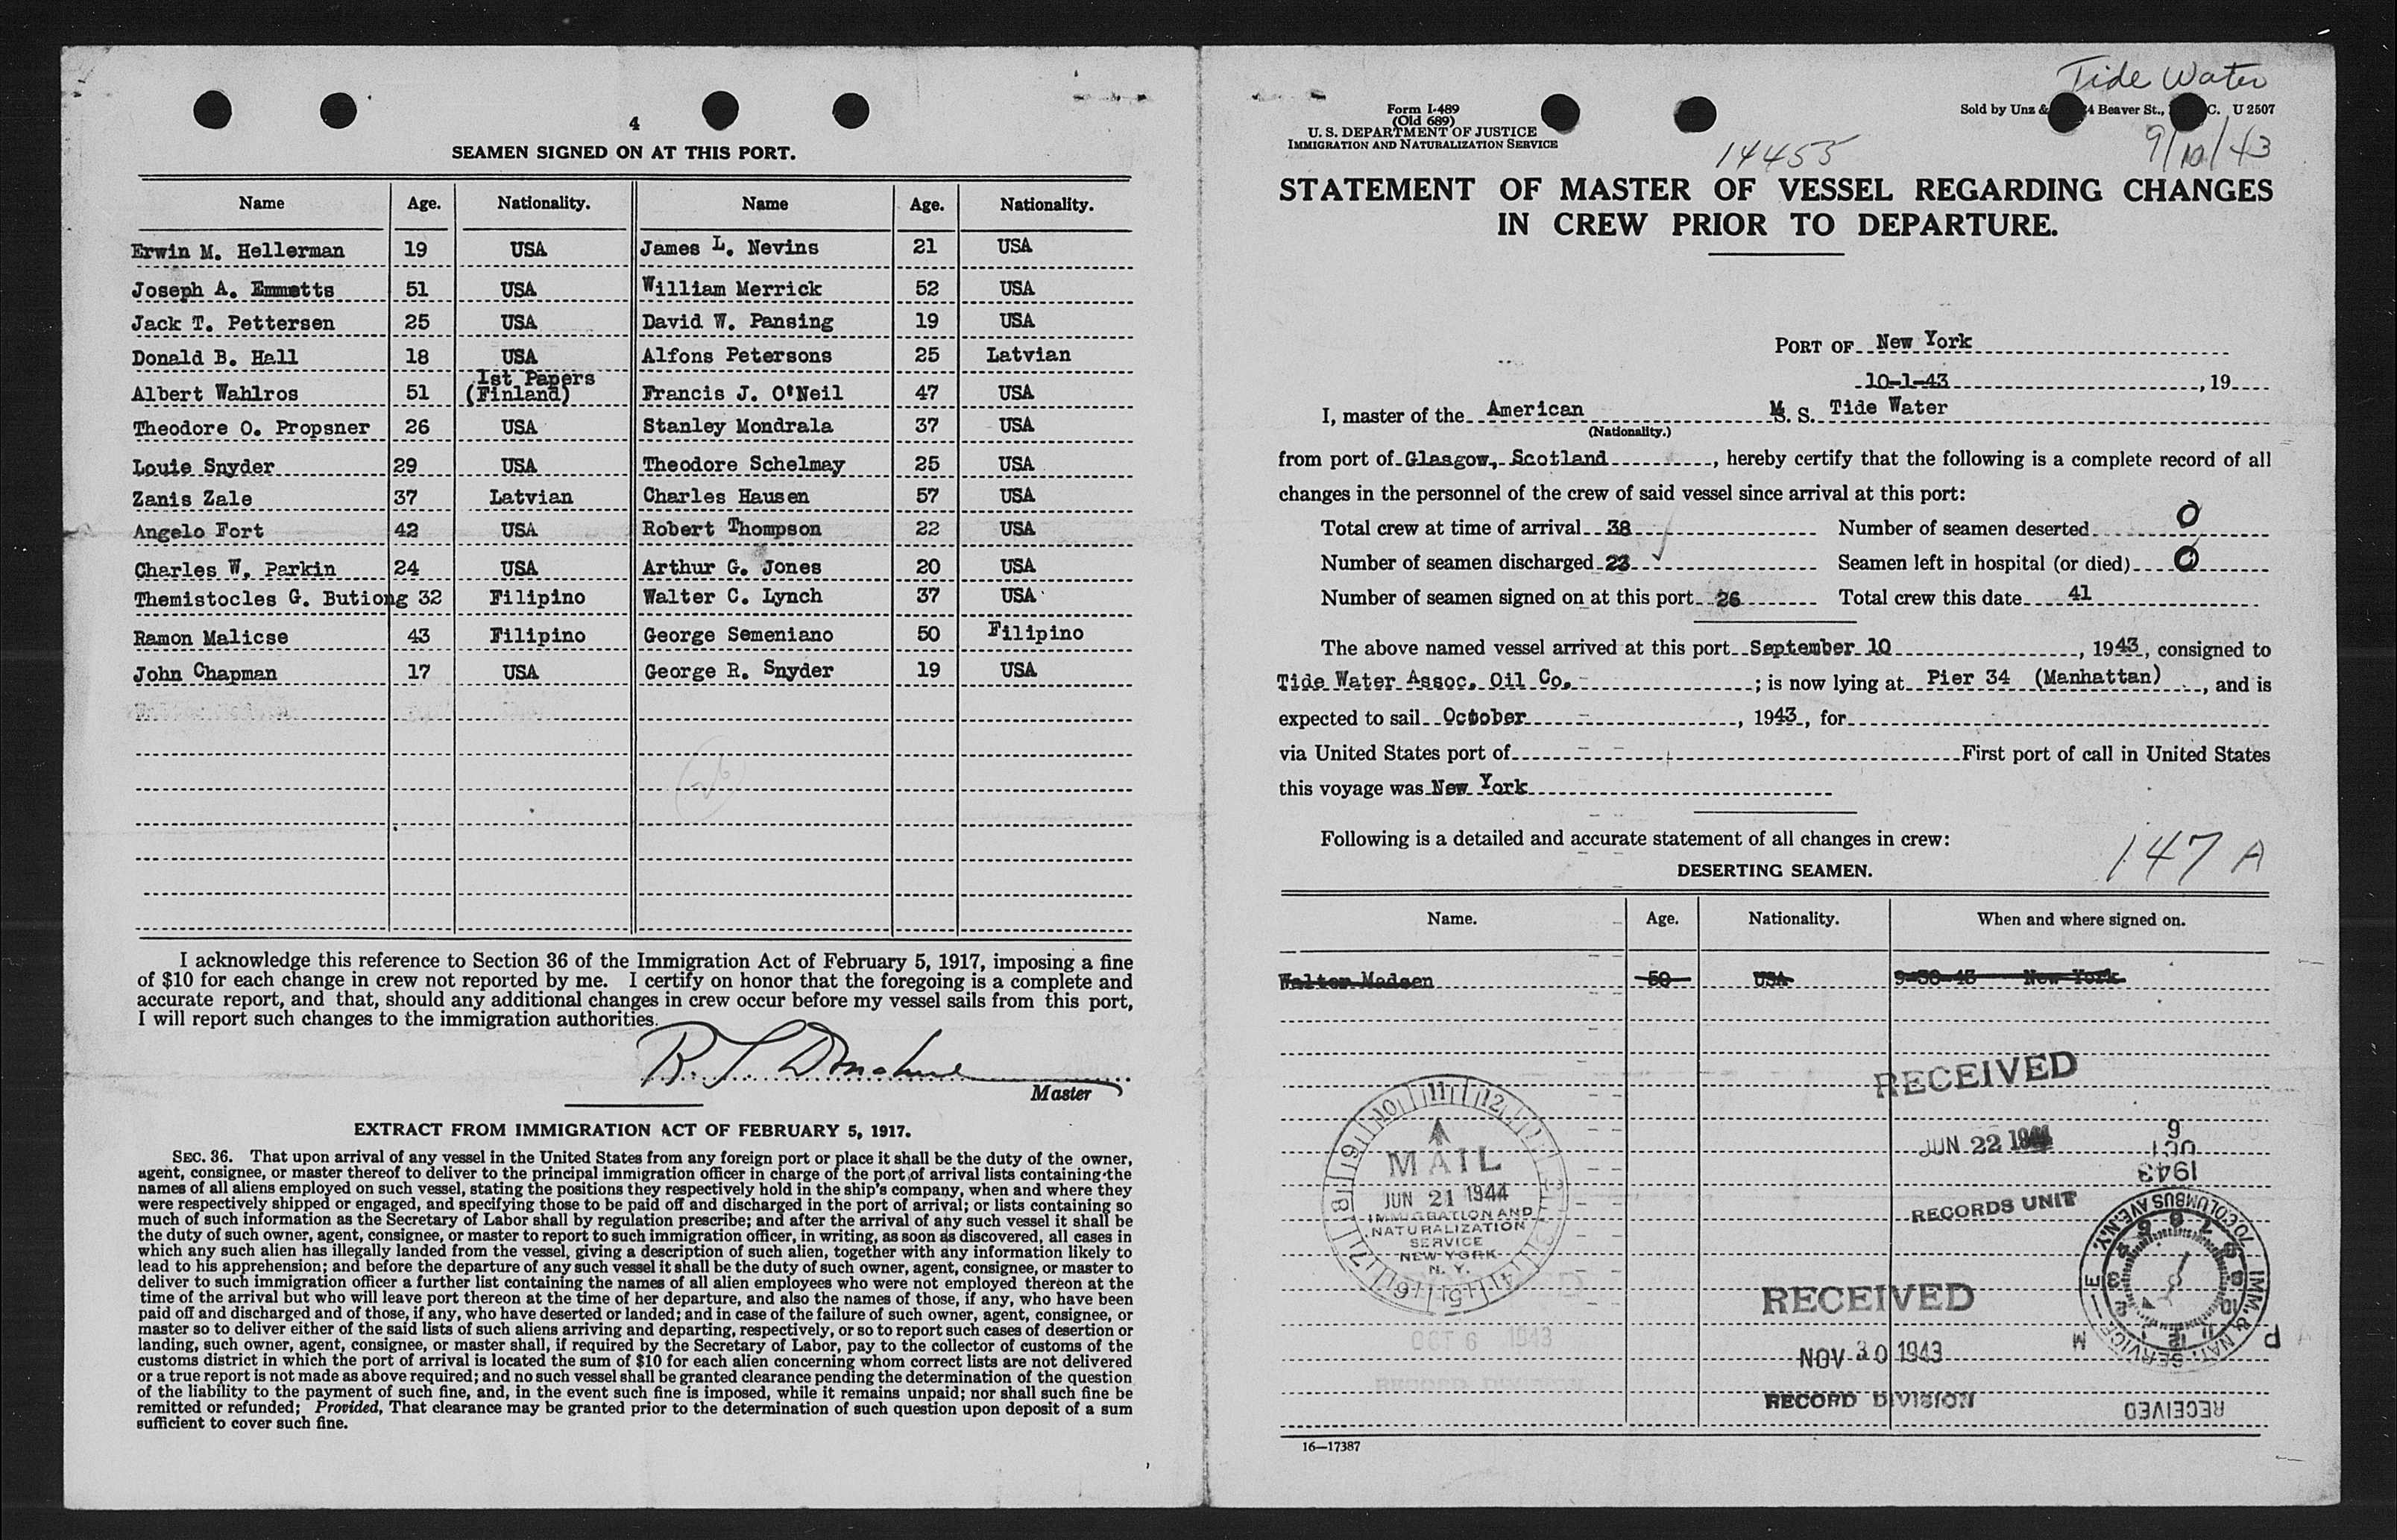 4
SEAMEN SIGNED ON AT THIS PORT.
Name Age. Nationality. Name Age. Nationality.
Erwin M. Hellerman 19 USA James L. Nevins 21 USA
Joseph A. Emmetts 51 USA William Merrick 52 USA
Jack T. Pettersen 25 USA David W. Pansing 19 USA
Donald B. Hall 18 USA Alfons Petersons 25 Latvian
1st Papers
Albert Wahlros 51 (Finland) Francis J. O'Neil 47 USA
Theodore O. Propsner 26 USA Stanley Mondrala 37 USA
Louie Snyder 29 USA Theodore Schelmay 25 USA
Zanis Zale 37 Latvian Charles Hausen 57 USA
Angelo Fort 42 USA Robert Thompson 22 USA
Charles W. Parkin 24 USA Arthur G. Jones 20 USA
Themistocles G. Butiong 32 Filipino Walter C. Lynch 37 USA
Ramon Malicse 43 Filipino George Semeniano 50 Filipino
John Chapman 17 USA George R. Snyder 19 USA
26
I acknowledge this reference to Section 36 of the Immigration Act of February 5, 1917, imposing a fine
of $10 for each change in crew not reported by me. I certify on honor that the foregoing is a complete and
accurate report, and that, should any additional changes in crew occur before my vessel sails from this port,
I will report such changes to the immigration authorities.
R. S. Donahue
Master
EXTRACT FROM IMMIGRATION ACT OF FEBRUARY 5, 1917.
SEC. 36. That upon arrival of any vessel in the United States from any foreign port or place it shall be the duty of the owner,
agent, consignee, or master thereof to deliver to the principal immigration officer in charge of the port of arrival lists containing the
names of all aliens employed on such vessel, stating the positions they respectively hold in the ship's company, when and where they
were respectively shipped or engaged, and specifying those to be paid off and discharged in the port of arrival; or lists containing so
much of such information as the Secretary of Labor shall by regulation prescribe; and after the arrival of any such vessel it shall be
the duty of such owner, agent, consignee, or master to report to such immigration officer, in writing, as soon as discovered, all cases in
which any such alien has illegally landed from the vessel, giving a description of such alien, together with any information likely to
lead to his apprehension; and before the departure of any such vessel it shall be the duty of such owner, agent, consignee, or master to
deliver to such immigration officer a further list containing the names of all alien employees who were not employed thereon at the
time of the arrival but who will leave port thereon at the time of her departure, and also the names of those, if any, who have been
paid off and discharged and of those, if any, who have deserted or landed; and in case of the failure of such owner, agent, consignee, or
master so to deliver either of the said lists of such aliens arriving and departing, respectively, or so to report such cases of desertion or
landing, such owner, agent, consignee, or master shall, if required by the Secretary of Labor, pay to the collector of customs of the
customs district in which the port of arrival is located the sum of $10 for each alien concerning whom correct lists are not delivered
or a true report is not made as above required; and no such vessel shall be granted clearance pending the determination of the question
of the liability to the payment of such fine, and, in the event such fine is imposed, while it remains unpaid; nor shall such fine be
remitted or refunded; Provided, That clearance may be granted prior to the determination of such question upon deposit of a sum
sufficient to cover such fine.
Tide Water
Form I-489
(Old 689)
U. S. DEPARTMENT OF JUSTICE
IMMIGRATION AND NATURALIZATION SERVICE
Sold by Unz & 4 Beaver St., C. U 2507
14455
9/10/43
STATEMENT OF MASTER OF VESSEL REGARDING CHANGES
IN CREW PRIOR TO DEPARTURE.
PORT OF New York
10-1-43, 19
I, master of the American M. S. Tide Water
(Nationality.)
from port of Glasgow, Scotland, hereby certify that the following is a complete record of all
changes in the personnel of the crew of said vessel since arrival at this port:
Total crew at time of arrival 38 Number of seamen deserted 0
Number of seamen discharged 23 Seamen left in hospital (or died) 0
Number of seamen signed on at this port 26 Total crew this date 41
The above named vessel arrived at this port September 10, 1943, consigned to
Tide Water Assoc. Oil Co. ; is now lying at Pier 34 (Manhattan), and is
expected to sail October, 1943, for
via United States port of First port of call in United States
this voyage was New York
Following is a detailed and accurate statement of all changes in crew:
147 A
DESERTING SEAMEN.
Name. Age. Nationality. When and where signed on.
Walter Madsen 50 USA 9-30-43 New York
RECEIVED
JUN 22 1944
RECORDS UNIT
MAIL
JUN 21 1944
IMMIGRATION AND
NATURALIZATION
SERVICE
NEW YORK
N. Y.
6
OCT
1943
70 COLUMBUS AVE. N.Y.
IMM. & NAT. SERVICE
M
P
OCT 6 1943
RECORD DIVISION
RECEIVED
NOV 30 1943
RECORD DIVISION
RECEIVED
16—17387